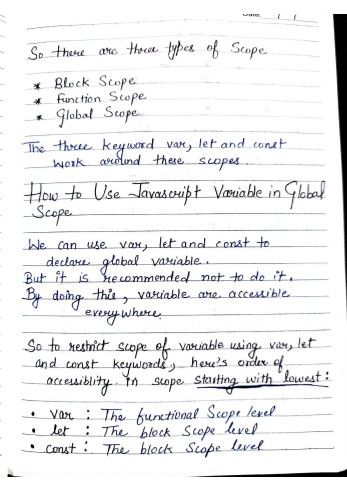 Date. / /
So there are three types of Scope
* Block Scope
* Function Scope
* Global Scope
The three keyword var, let and const
work around these scopes.
How to Use Javascript Variable in Global
Scope
We can use var, let and const to
declare global variable.
But it is recommended not to do it.
By doing this, variable are accessible
everywhere.
So to restrict scope of variable using var, let
and const keywords, here's order of
accessiblity in scope starting with lowest:
• var : The functional Scope level
• let : The block Scope level
• const : The block Scope level